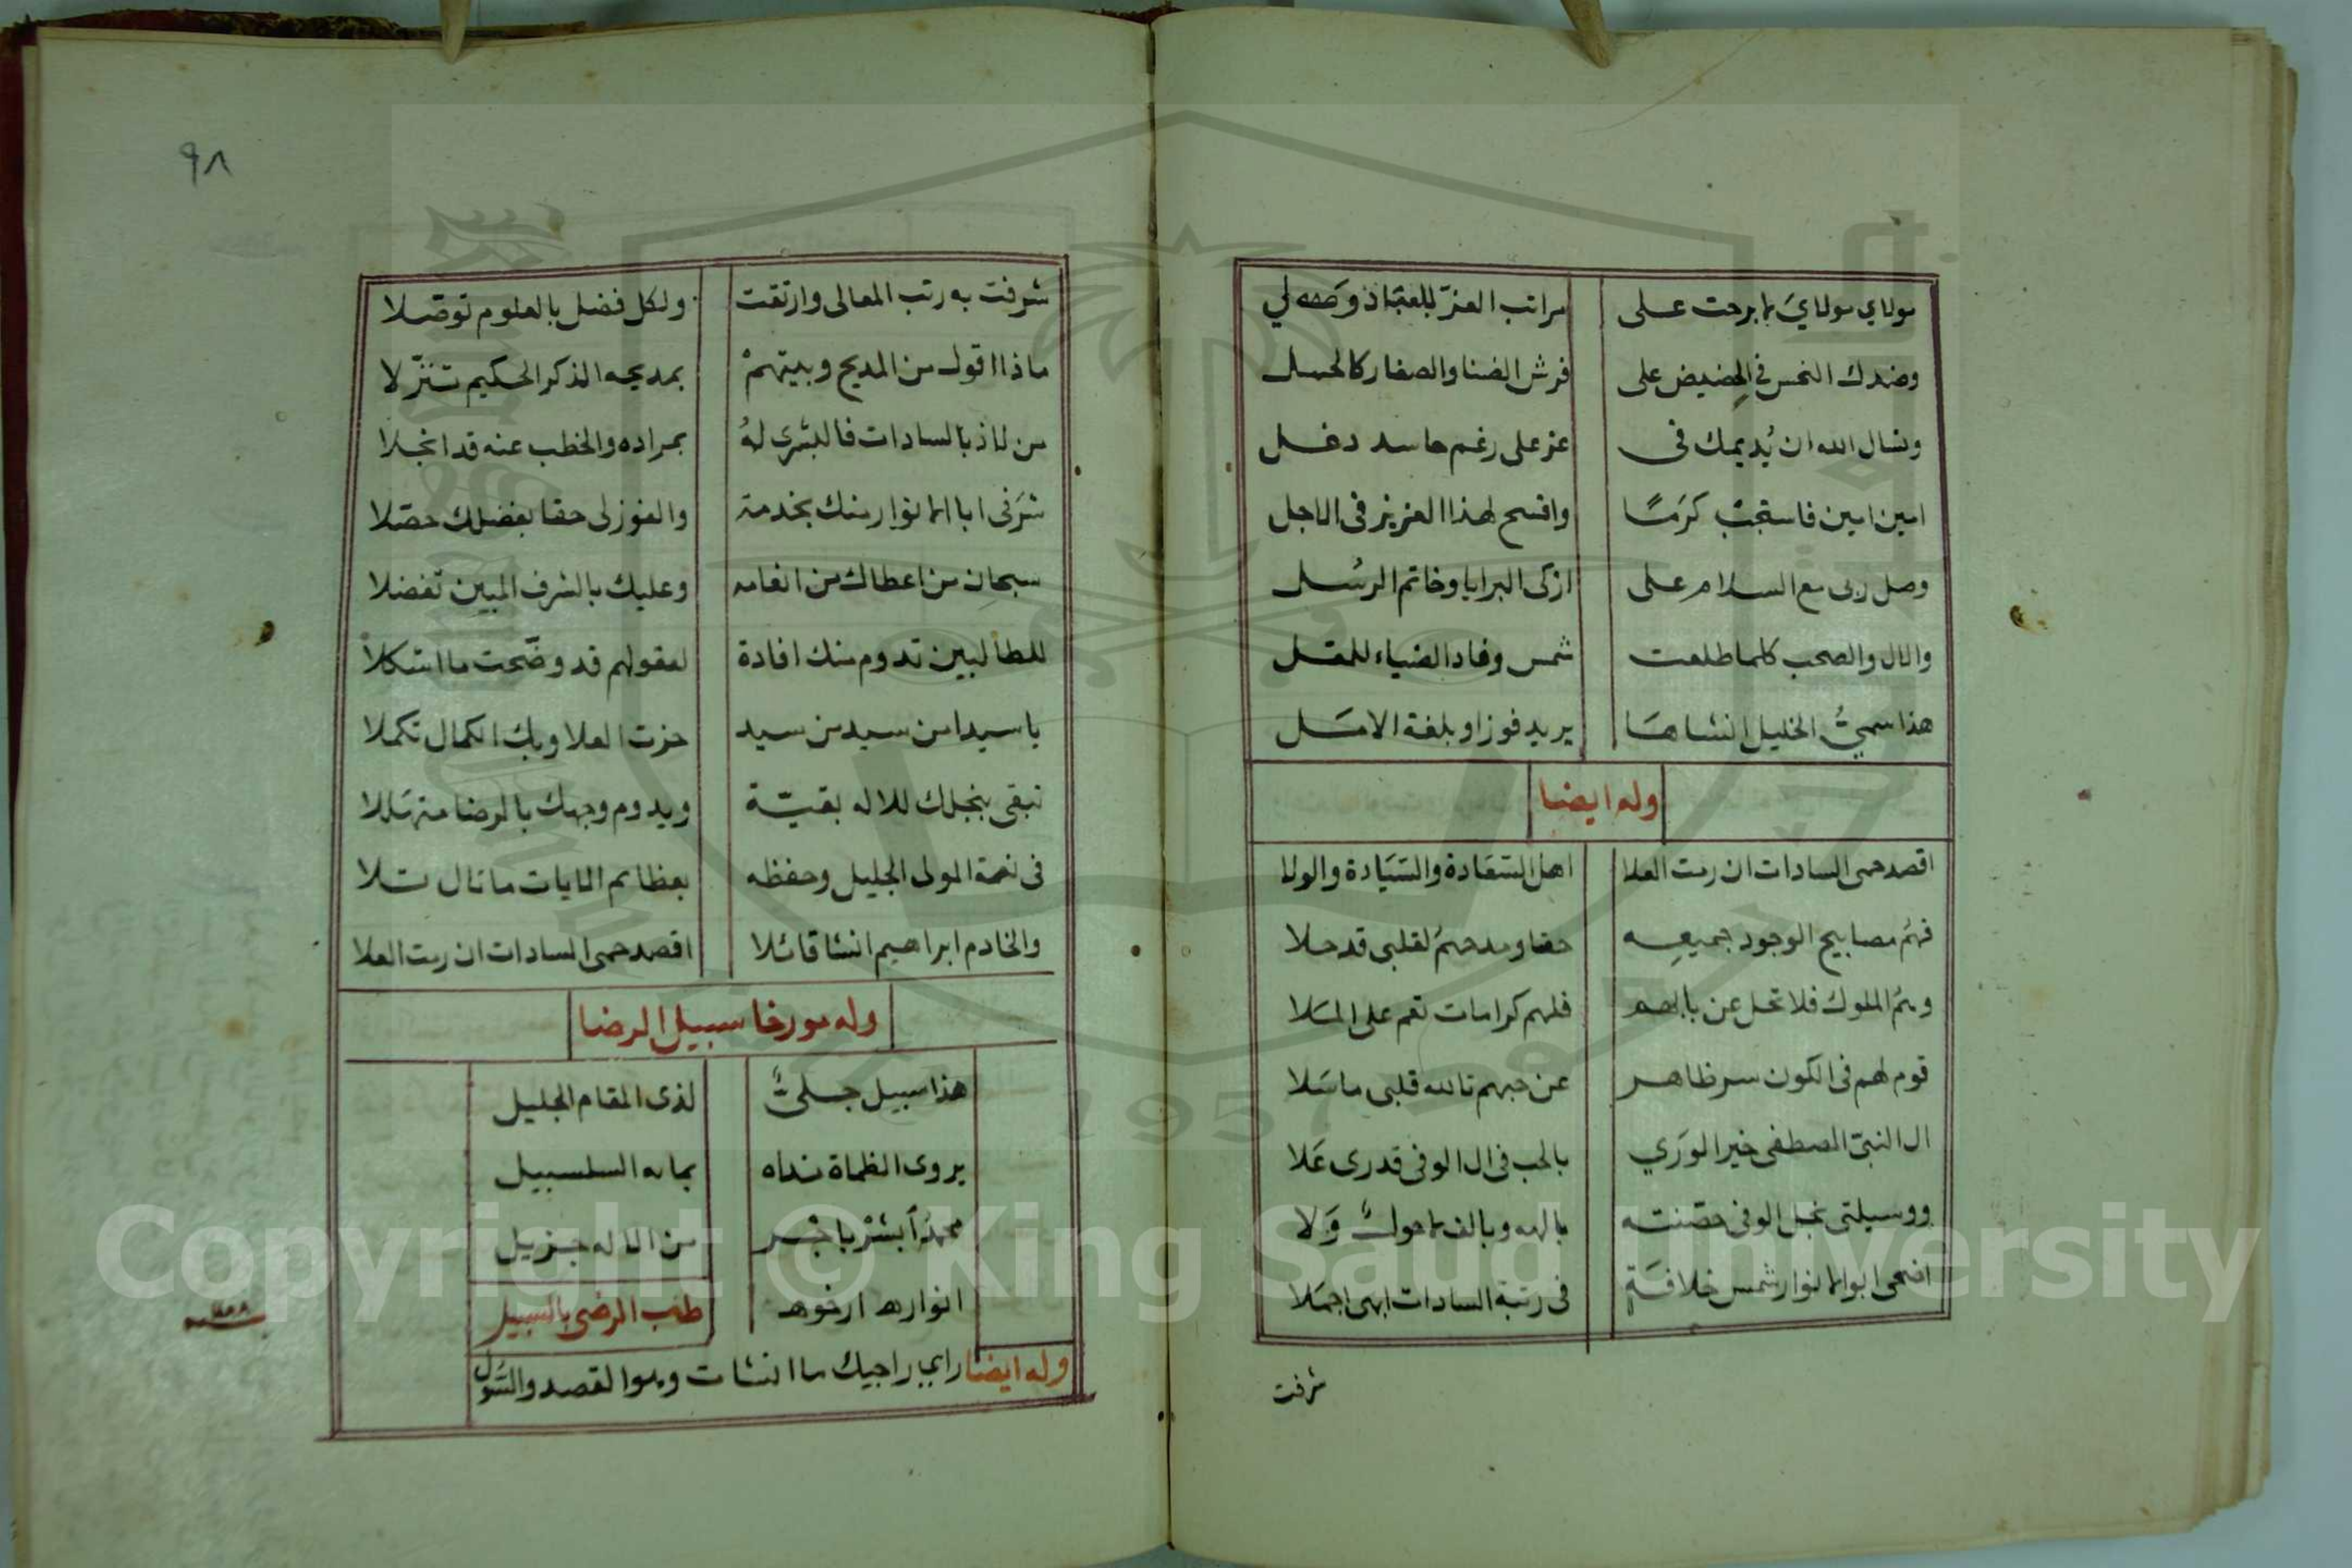 مولاي مولاي ما برحت على مراتب العز للعباد ولي
وضدك النحس في الحضيض على فرش الضنا والصغار كالحسل
ونسال الله ان يُديمك فى عز على رغم حاسد دغل
امين امين فاستجب كرمًا وافسح لهذا العزيز فى الاجل
وصل ربى مع السلام على ازكى البرايا وخاتم الرسل
والال والصحب كلما طلعت شمس وفاد الضياء للمقل
هذا سميُّ الخليل انشاها يريد فوزا وبلغة الامل
وله ايضا
اقصد حمى السادات ان رمت العلا اهل السعادة والسيادة والولا
فهمُ مصابيح الوجود جميعه حقا ومدحهمُ لقلبى قد حلا
وهمُ الملوك فلا تحل عن بابهم فلهم كرامات تعم على الملا
قوم لهم فى الكون سر ظاهر عن حبهم تالله قلبى ما سلا
ال النبىّ المصطفى خير الورَي بالحب فى ال الوفى قدرى عَلا
ووسيلتى نجل الوفى حصنته بالله وبالف لا حولٌ وَلا
اضحى ابو الانوار شمس خلافةٍ فى رتبة السادات ابهى اجملا
شرفت
٩٨
شرفت به رتب المعالى وارتقت ولكل فضل بالعلوم توصّلا
ماذا اقول من المديح وبيتهمْ بمديحه الذكر الحكيم تنزّلا
من لاذ بالسادات فالبشرى لهُ بمراده والخطب عنه قد انجلا
شرّفنى ابا الانوار منك بخدمة والفوز لى حقا بفضلك حصّلا
سبحان من اعطاك من انعامه وعليك بالشرف المبين تفضلا
للطالبين تدوم منك افادة لعقولهم قد وضّحت ما اشكلا
يا سيدا من سيد من سيد حزت العلا وبك الكمال تكملا
تبقى بنجلك للاله بقيّة ويدوم وجهك بالرضا متهللا
فى نعمة المولى الجليل وحفظه بعظائم الايات ما تال تلا
والخادم ابراهيم انشا قائلا اقصد حمى السادات ان رمت العلا
وله مورخا سبيل الرضا
هذا سبيل جلىٌّ لذى المقام الجليل
يروى الظماة نداه بمائه السلسبيل
محمدٌ ابشر باجر من الاله جزيل
انواره ارخوه طب الرضى بالسبيل
وله ايضا راي راجيك ما انشات وهو القصد والسّول
Copyright © King Saud University
1957